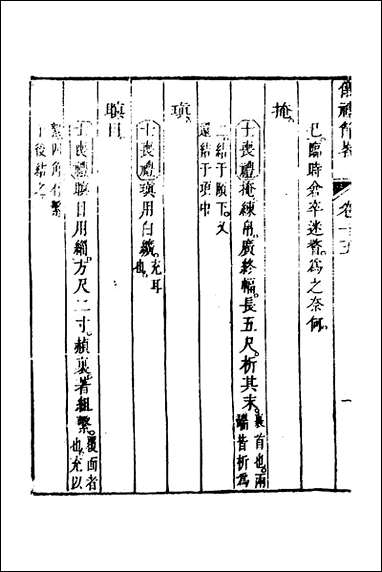 儀禮節畧
卷十五
一
已臨時倉卒迷瞀為之奈何
掩
士喪禮掩練帛廣終幅長五尺析其末
裹首也兩
端皆析為
二結于頤下又
還結于項中
瑱
士喪禮瑱用白纊
充耳
也
瞑目
士喪禮瞑目用緇方尺二寸赬裏著組繫
覆面者
也充以
絮四角有繫
于後結之